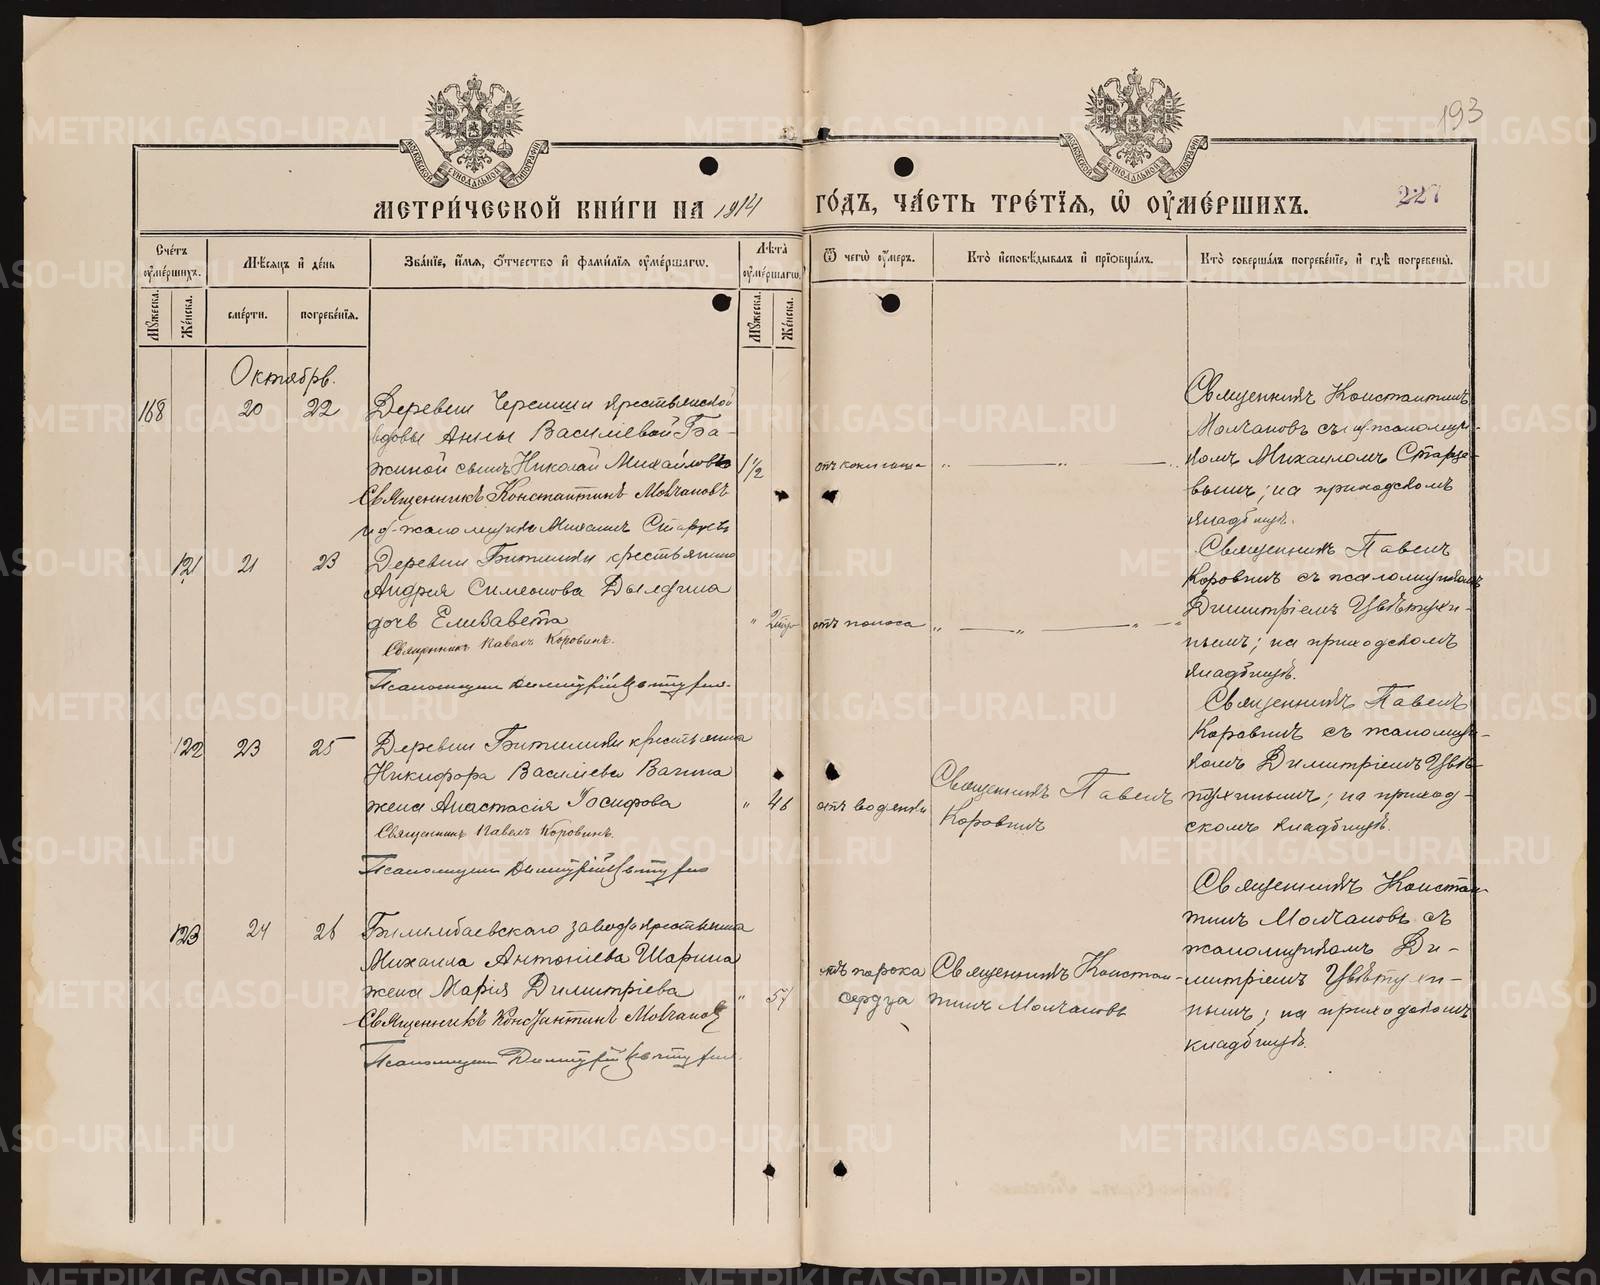 193
227
МОСКОВСКОЙ СѴНОДАЛЬНОЙ ТИПОГРАФІИ
МОСКОВСКОЙ СѴНОДАЛЬНОЙ ТИПОГРАФІИ
МЕТРИ́ЧЕСКОЙ КНИ́ГИ НА 1914 ГО́ДЪ, ЧА́СТЬ ТРЕ́ТІѦ, Ѡ ОУ҆МЕ́РШИХЪ.
Сче́тъ оумéршихъ.
Мѣ́сѧцъ и҆ де́нь
Зва́нїе, и҆́мѧ, ѻ҆́тчество и҆ фами́лїѧ оумéршагѡ.
Лѣ́та оумéршагѡ.
Ѿ чегѡ̀ оу́меръ.
Кто̀ и҆сповѣ́дывалъ и҆ прїѡбща́лъ.
Кто̀ соверша́лъ погребе́нїе, и҆ гдѣ̀ погребены̀.
Мꙋжеска.
Же́нска.
сме́рти.
погребе́нїѧ.
Мꙋжеска.
Же́нска.
Октябрь.
168
20
22
Деревни Черемши крестьянской
вдовы Анны Василіевой Ба-
жиной сынъ Николай Михайловъ
Священникъ Константинъ Молчановъ
и д. псаломщика Михаилъ Старцевъ
1 1/2
отъ коклюша
„ — „ — „
Священникъ Константинъ
Молчановъ съ и д. псаломщи-
комъ Михаиломъ Старце-
вымъ; на приходскомъ
кладбищѣ.
121
21
23
Деревни Битимки крестьянина
Андрея Симеонова Дылдина
дочь Елизавета
Священникъ Павелъ Коровинъ.
Псаломщикъ Димитрій Цвѣтухинъ.
„
отъ поноса
„ — „ — „ — „
Священникъ Павелъ
Коровинъ съ псаломщикомъ
Димитріемъ Цвѣтухи-
нымъ; на приходскомъ
кладбищѣ.
122
23
25
Деревни Битимки крестьянина
Никифора Василіева Вагина
жена Анастасія Іосифова
Священникъ Павелъ Коровинъ.
Псаломщикъ Димитрій Цвѣтухинъ
„
46
отъ водянки
Священникъ Павелъ
Коровинъ
Священникъ Павелъ
Коровинъ съ псаломщи-
комъ Димитріемъ Цвѣ-
тухинымъ; на приход-
скомъ кладбищѣ.
123
24
26
Билимбаевскаго завода крестьянина
Михаила Антоніева Шарина
жена Марія Димитріева
Священникъ Константинъ Молчановъ
Псаломщикъ Димитрій Цвѣтухинъ.
„
54
отъ порока
сердца
Священникъ Констан-
тинъ Молчановъ
Священникъ Констан-
тинъ Молчановъ съ
псаломщикомъ Ди-
митріемъ Цвѣтухи-
нымъ; на приходскомъ
кладбищѣ.
METRIKI.GASO-URAL.RU